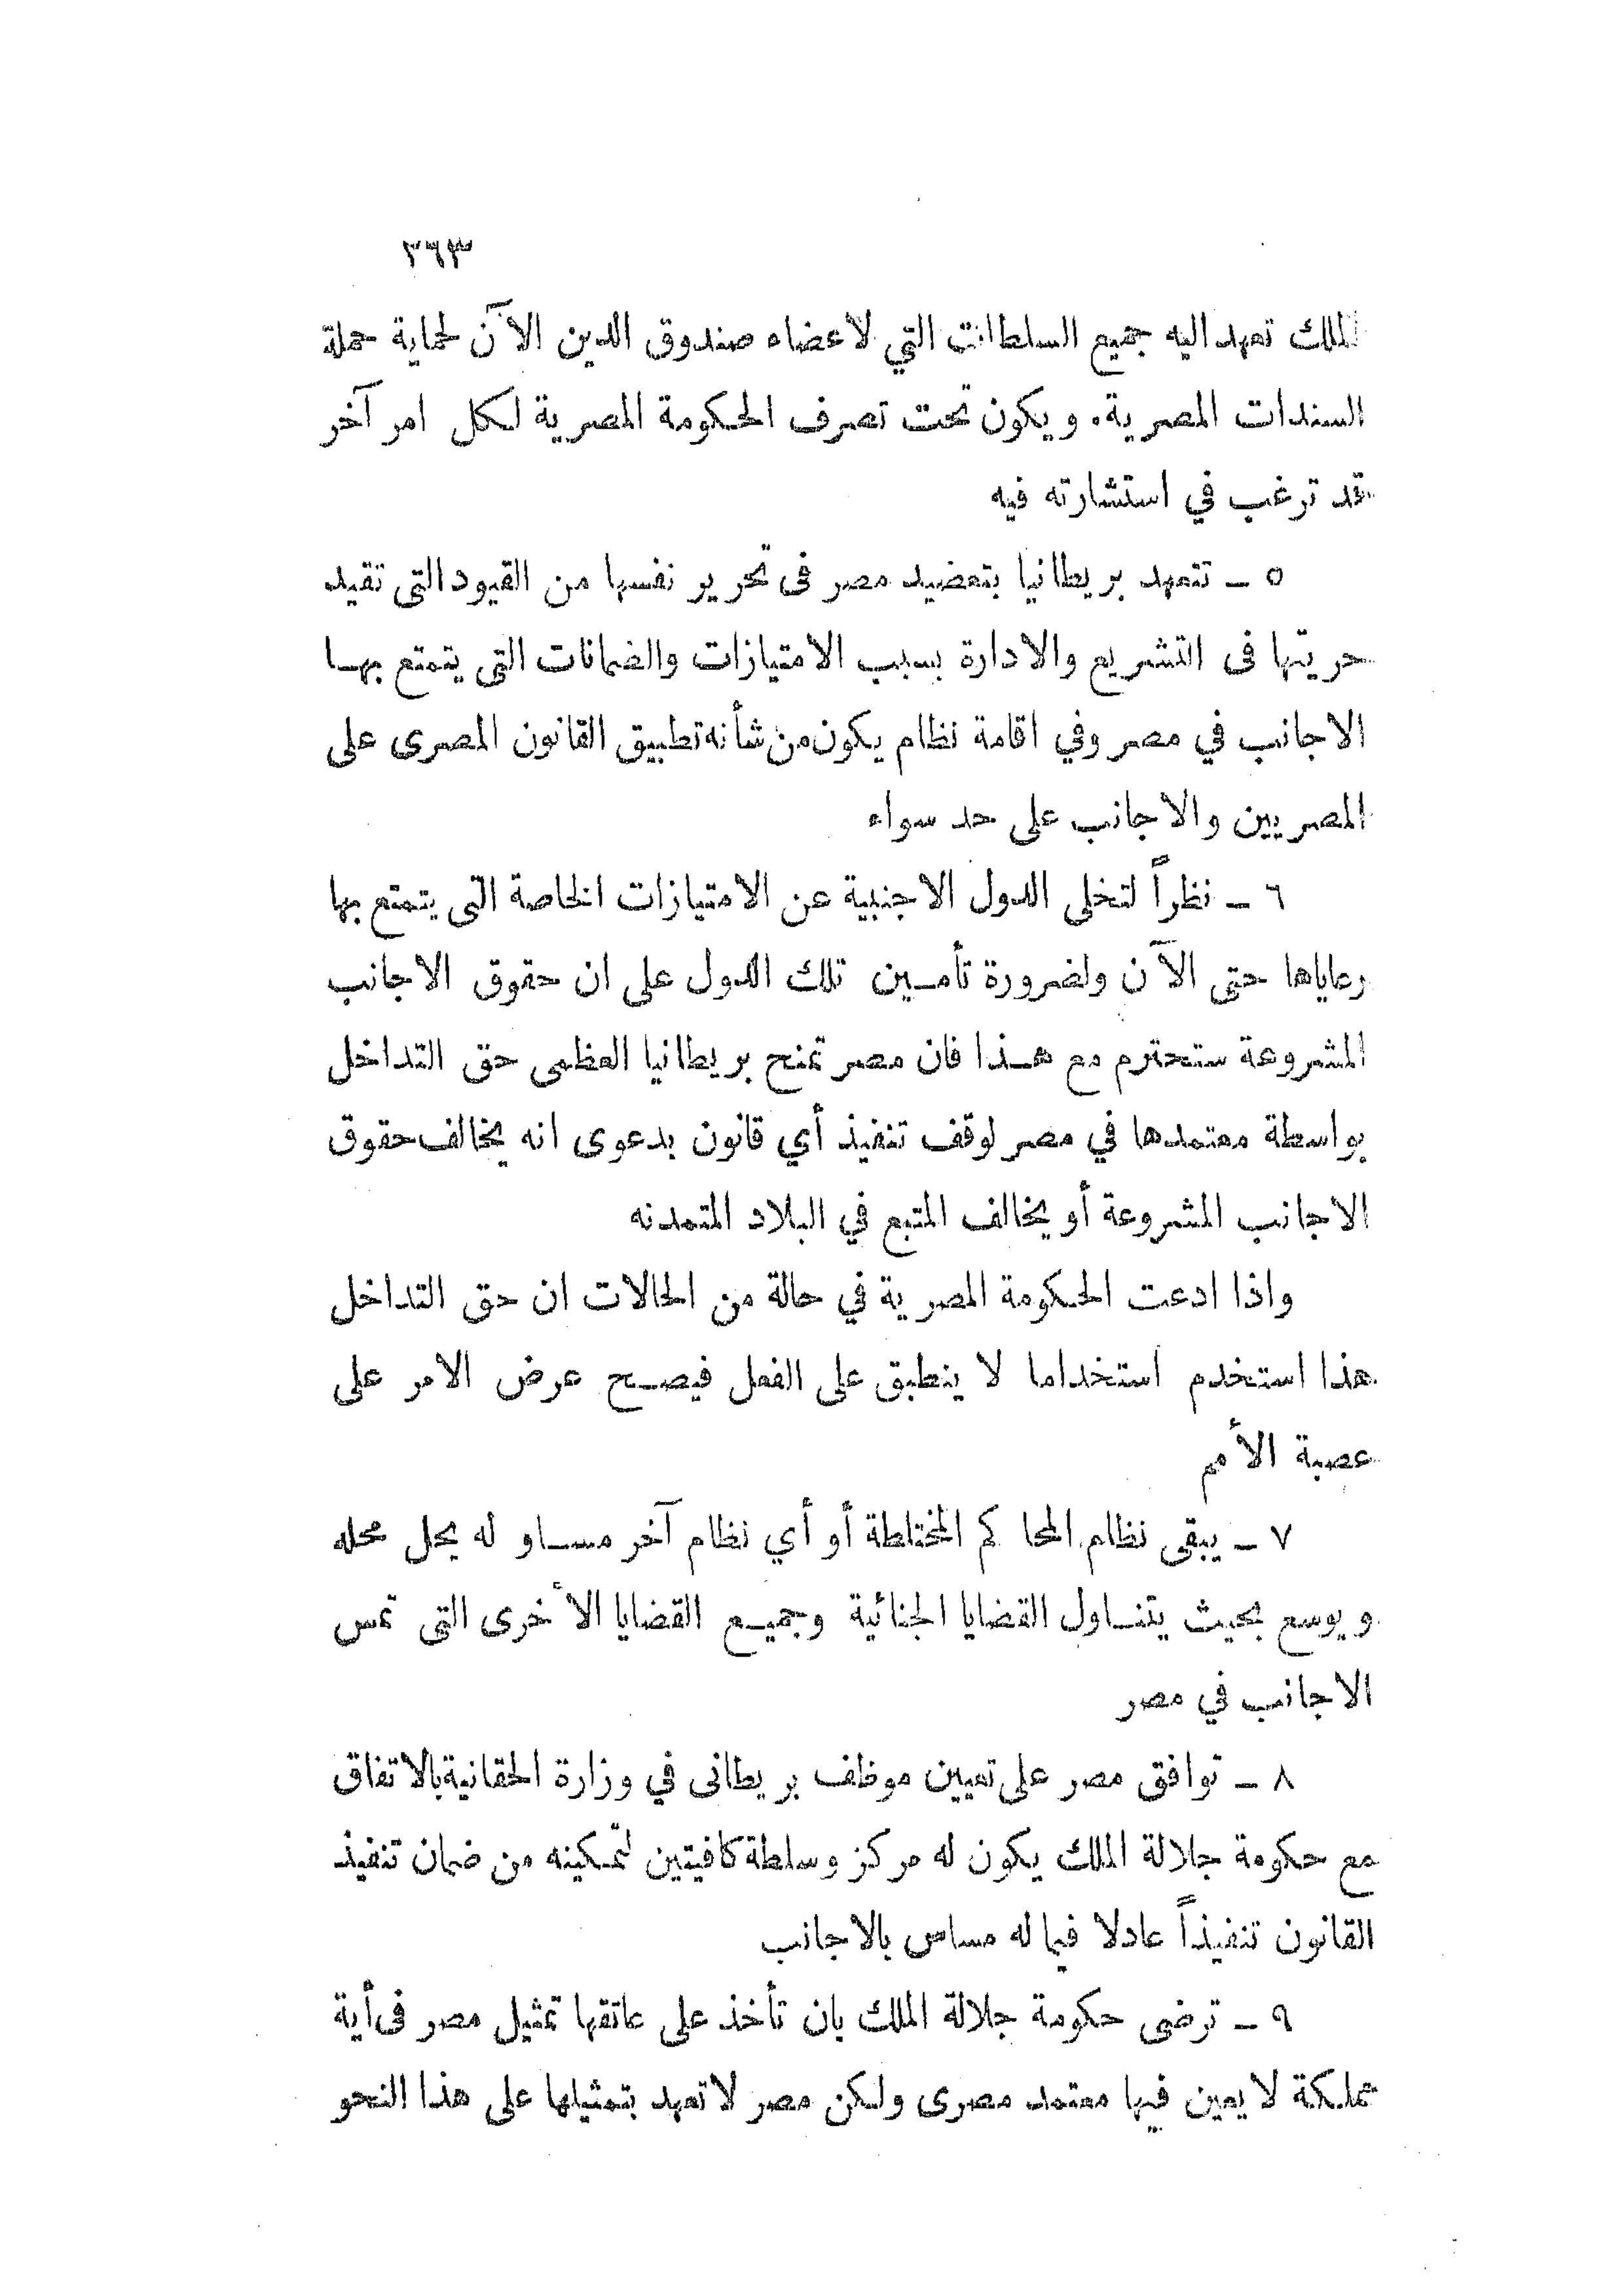 ٣٦٣
الملك تعهد اليه جميع السلطات التي لاعضاء صندوق الدين الآن لحماية حملة
السندات المصرية. ويكون تحت تصرف الحكومة المصرية لكل امر آخر
قد ترغب في استشارته فيه
٥ – تتعهد بريطانيا بتعضيد مصر فى تحرير نفسها من القيود التى تقيد
حريتها فى التشريع والادارة بسبب الامتيازات والضمانات التى يتمتع بها
الاجانب في مصر وفي اقامة نظام يكون من شأنه تطبيق القانون المصرى على
المصريين والاجانب على حد سواء
٦ – نظراً لتخلى الدول الاجنبية عن الامتيازات الخاصة التى يتمتع بها
رعاياها حتى الآن ولضرورة تأمين تلك الدول على ان حقوق الاجانب
المشروعة ستحترم مع هذا فان مصر تمنح بريطانيا العظمى حق التداخل
بواسطة معتمدها في مصر لوقف تنفيذ أي قانون بدعوى انه يخالف حقوق
الاجانب المشروعة أو يخالف المتبع في البلاد المتمدنه
واذا ادعت الحكومة المصرية في حالة من الحالات ان حق التداخل
هذا استخدم استخداما لا ينطبق على الفعل فيصح عرض الامر على
عصبة الأمم
٧ – يبقى نظام المحاكم المختلطة أو أي نظام آخر مساو له يحل محله
ويوسع بحيث يتناول القضايا الجنائية وجميع القضايا الأخرى التى تمس
الاجانب في مصر
٨ – توافق مصر على تعيين موظف بريطانى في وزارة الحقانية بالاتفاق
مع حكومة جلالة الملك يكون له مركز وسلطة كافيتين لتمكينه من ضمان تنفيذ
القانون تنفيذاً عادلا فيما له مساس بالاجانب
٩ – ترضى حكومة جلالة الملك بان تأخذ على عاتقها تمثيل مصر فى أية
مملكة لا يعين فيها معتمد مصرى ولكن مصر لا تعهد بتمثيلها على هذا النحو